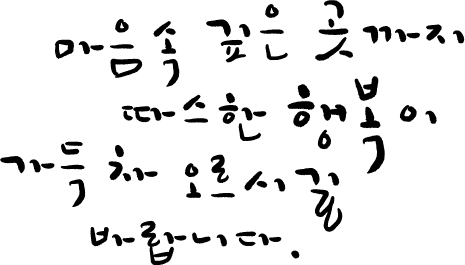 마음속 깊은 곳까지
따스한 행복이
가득 차 오르시길
바랍니다.